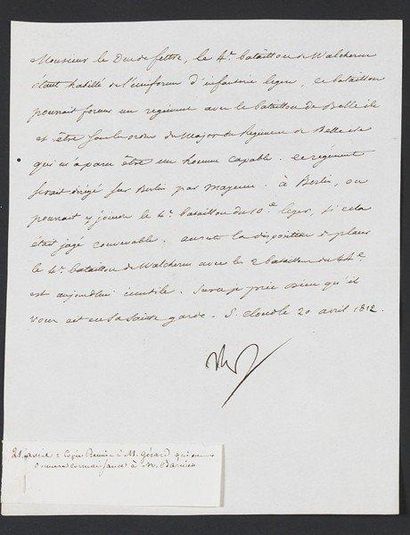 Monsieur le Duc de feltre, le 4e. bataillon de Walcheren
étant habillé de l'uniforme d'infanterie légere, ce bataillon
pourrait former un régiment avec le bataillon de Belle ile
et être sous les ordres du Major du Régiment de Belle ile
qui m'a paru être un homme capable. Ce régiment
serait dirigé sur Berlin par Mayence. à Berlin, on
pourrait y joindre le 4e. bataillon du 10e léger, si cela
était jugé convenable. ensuite la disposition de placer
le 4e. bataillon de Walcheren avec le 2 bataillon du 44e
est aujourd'hui inutile. Sur ce je prie dieu qu'il
vous ait en sa sainte garde. S. Cloud le 20 avril 1812.
21 avril : Copie à M. Gérard
à M. Barnier